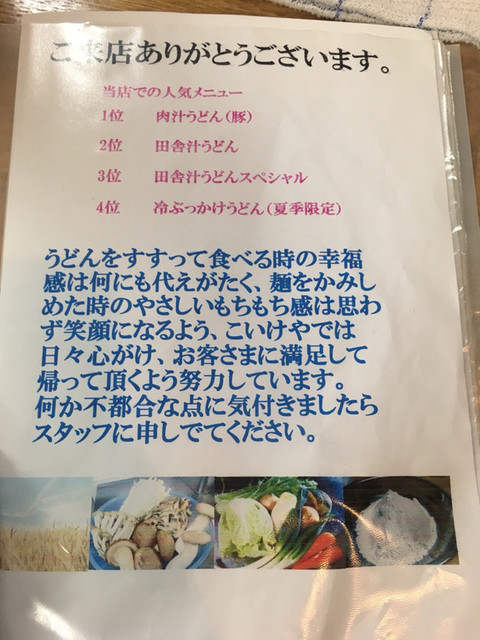 ご来店ありがとうございます。
当店での人気メニュー
1位 肉汁うどん（豚）
2位 田舎汁うどん
3位 田舎汁うどんスペシャル
4位 冷ぶっかけうどん（夏季限定）
うどんをすすって食べる時の幸福
感は何にも代えがたく、麺をかみし
めた時のやさしいもちもち感は思わ
ず笑顔になるよう、こいけやでは
日々心がけ、お客さまに満足して
帰って頂くよう努力しています。
何か不都合な点に気付きましたら
スタッフに申しでてください。